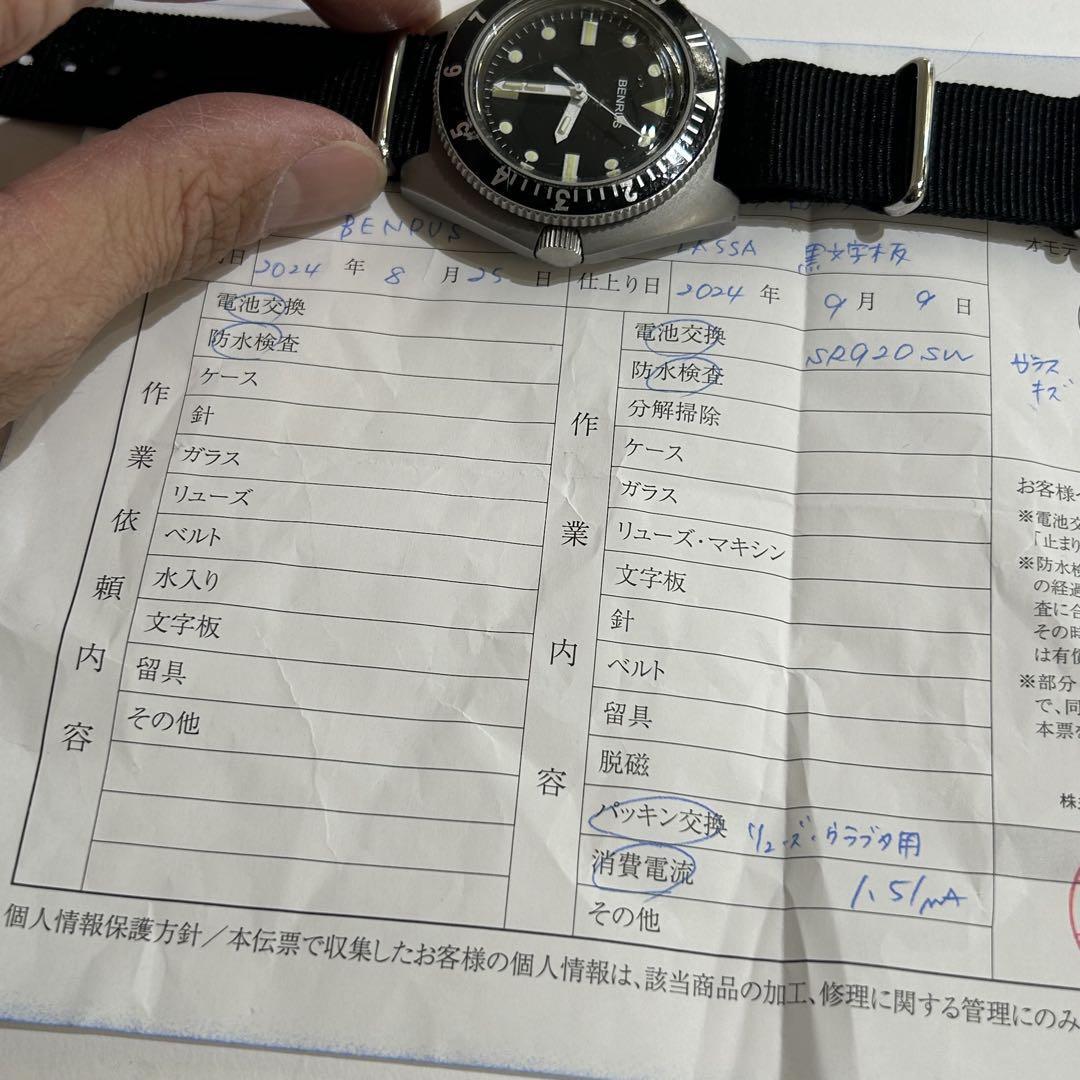 7
6
5
4
3
2
BENRUS
BENRUS
オモテ
黒文字板
2024 年 8 月 25 日
仕上り日 2024 年 9 月 9 日
作業依頼内容
電池交換
防水検査
ケース
針
ガラス
リューズ
ベルト
水入り
文字板
留具
その他
作業内容
電池交換 SR920SW
防水検査
分解掃除
ケース
ガラス
リューズ・マキシン
文字板
針
ベルト
留具
脱磁
パッキン交換 リューズ・ウラブタ用
消費電流 1.51μA
その他
ガラス
キズ
お客様
※電池交
「止まり
※防水検
の経過
査に合
その時
は有償
※部分
で、同
本票を
株
個人情報保護方針／本伝票で収集したお客様の個人情報は、該当商品の加工、修理に関する管理にのみ